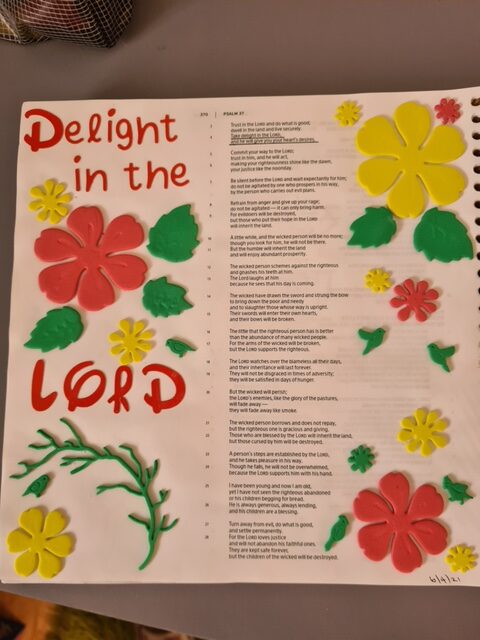 Delight
in the
LORD
370 | PSALM 37
3 Trust in the LORD and do what is good;
dwell in the land and live securely.
4 Take delight in the LORD,
and he will give you your heart's desires.
5 Commit your way to the LORD;
trust in him, and he will act,
6 making your righteousness shine like the dawn,
your justice like the noonday.
7 Be silent before the LORD and wait expectantly for him;
do not be agitated by one who prospers in his way,
by the person who carries out evil plans.
8 Refrain from anger and give up your rage;
do not be agitated — it can only bring harm.
9 For evildoers will be destroyed,
but those who put their hope in the LORD
will inherit the land.
10 A little while, and the wicked person will be no more;
though you look for him, he will not be there.
11 But the humble will inherit the land
and will enjoy abundant prosperity.
12 The wicked person schemes against the righteous
and gnashes his teeth at him.
13 The Lord laughs at him
because he sees that his day is coming.
14 The wicked have drawn the sword and strung the bow
to bring down the poor and needy
and to slaughter those whose way is upright.
15 Their swords will enter their own hearts,
and their bows will be broken.
16 The little that the righteous person has is better
than the abundance of many wicked people.
17 For the arms of the wicked will be broken,
but the LORD supports the righteous.
18 The LORD watches over the blameless all their days,
and their inheritance will last forever.
19 They will not be disgraced in times of adversity;
they will be satisfied in days of hunger.
20 But the wicked will perish;
the LORD's enemies, like the glory of the pastures,
will fade away —
they will fade away like smoke.
21 The wicked person borrows and does not repay,
but the righteous one is gracious and giving.
22 Those who are blessed by the LORD will inherit the land,
but those cursed by him will be destroyed.
23 A person's steps are established by the LORD,
and he takes pleasure in his way.
24 Though he falls, he will not be overwhelmed,
because the LORD supports him with his hand.
25 I have been young and now I am old,
yet I have not seen the righteous abandoned
or his children begging for bread.
26 He is always generous, always lending,
and his children are a blessing.
27 Turn away from evil, do what is good,
and settle permanently.
28 For the LORD loves justice
and will not abandon his faithful ones.
They are kept safe forever,
but the children of the wicked will be destroyed.
6/4/21